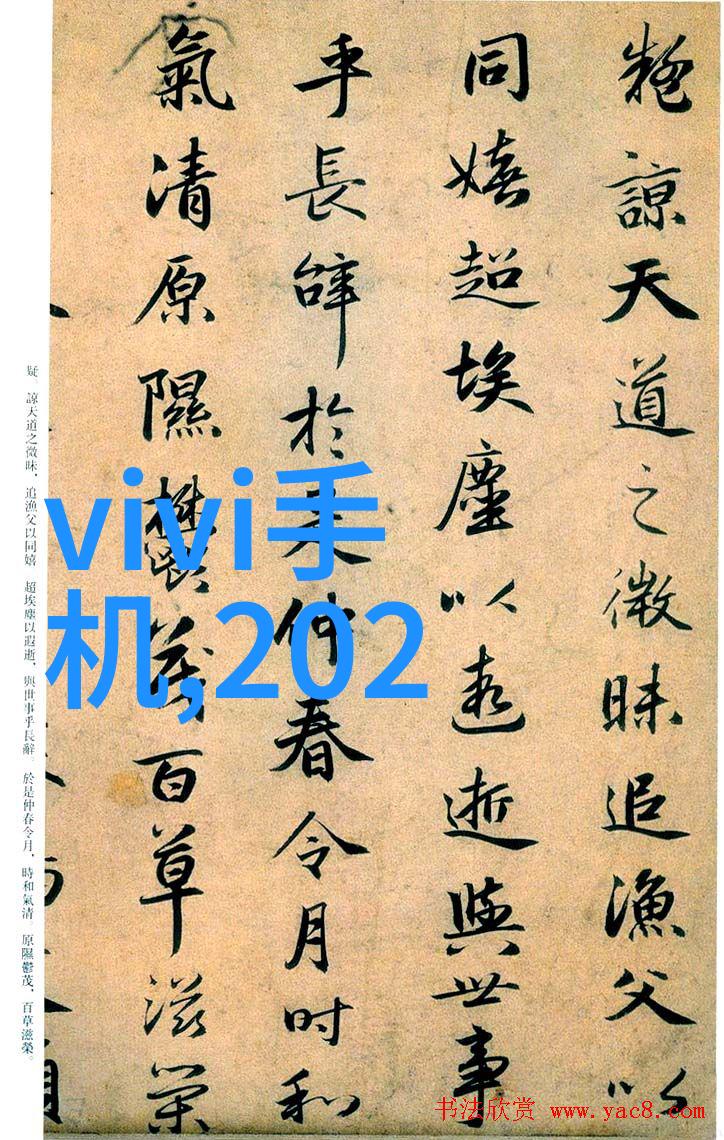 疑諒天道之微昧追漁父以
同嬉超埃塵以遐逝與世事
乎長辭於是仲春令月時和
氣清原隰鬱茂百草滋榮
疑。諒天道之微昧，追漁父以同嬉 超埃塵以遐逝，與世事乎長辭。於是仲春令月，時和氣清。原隰鬱茂，百草滋榮。
vivi手
机,202
书法欣赏 www.yac8.com